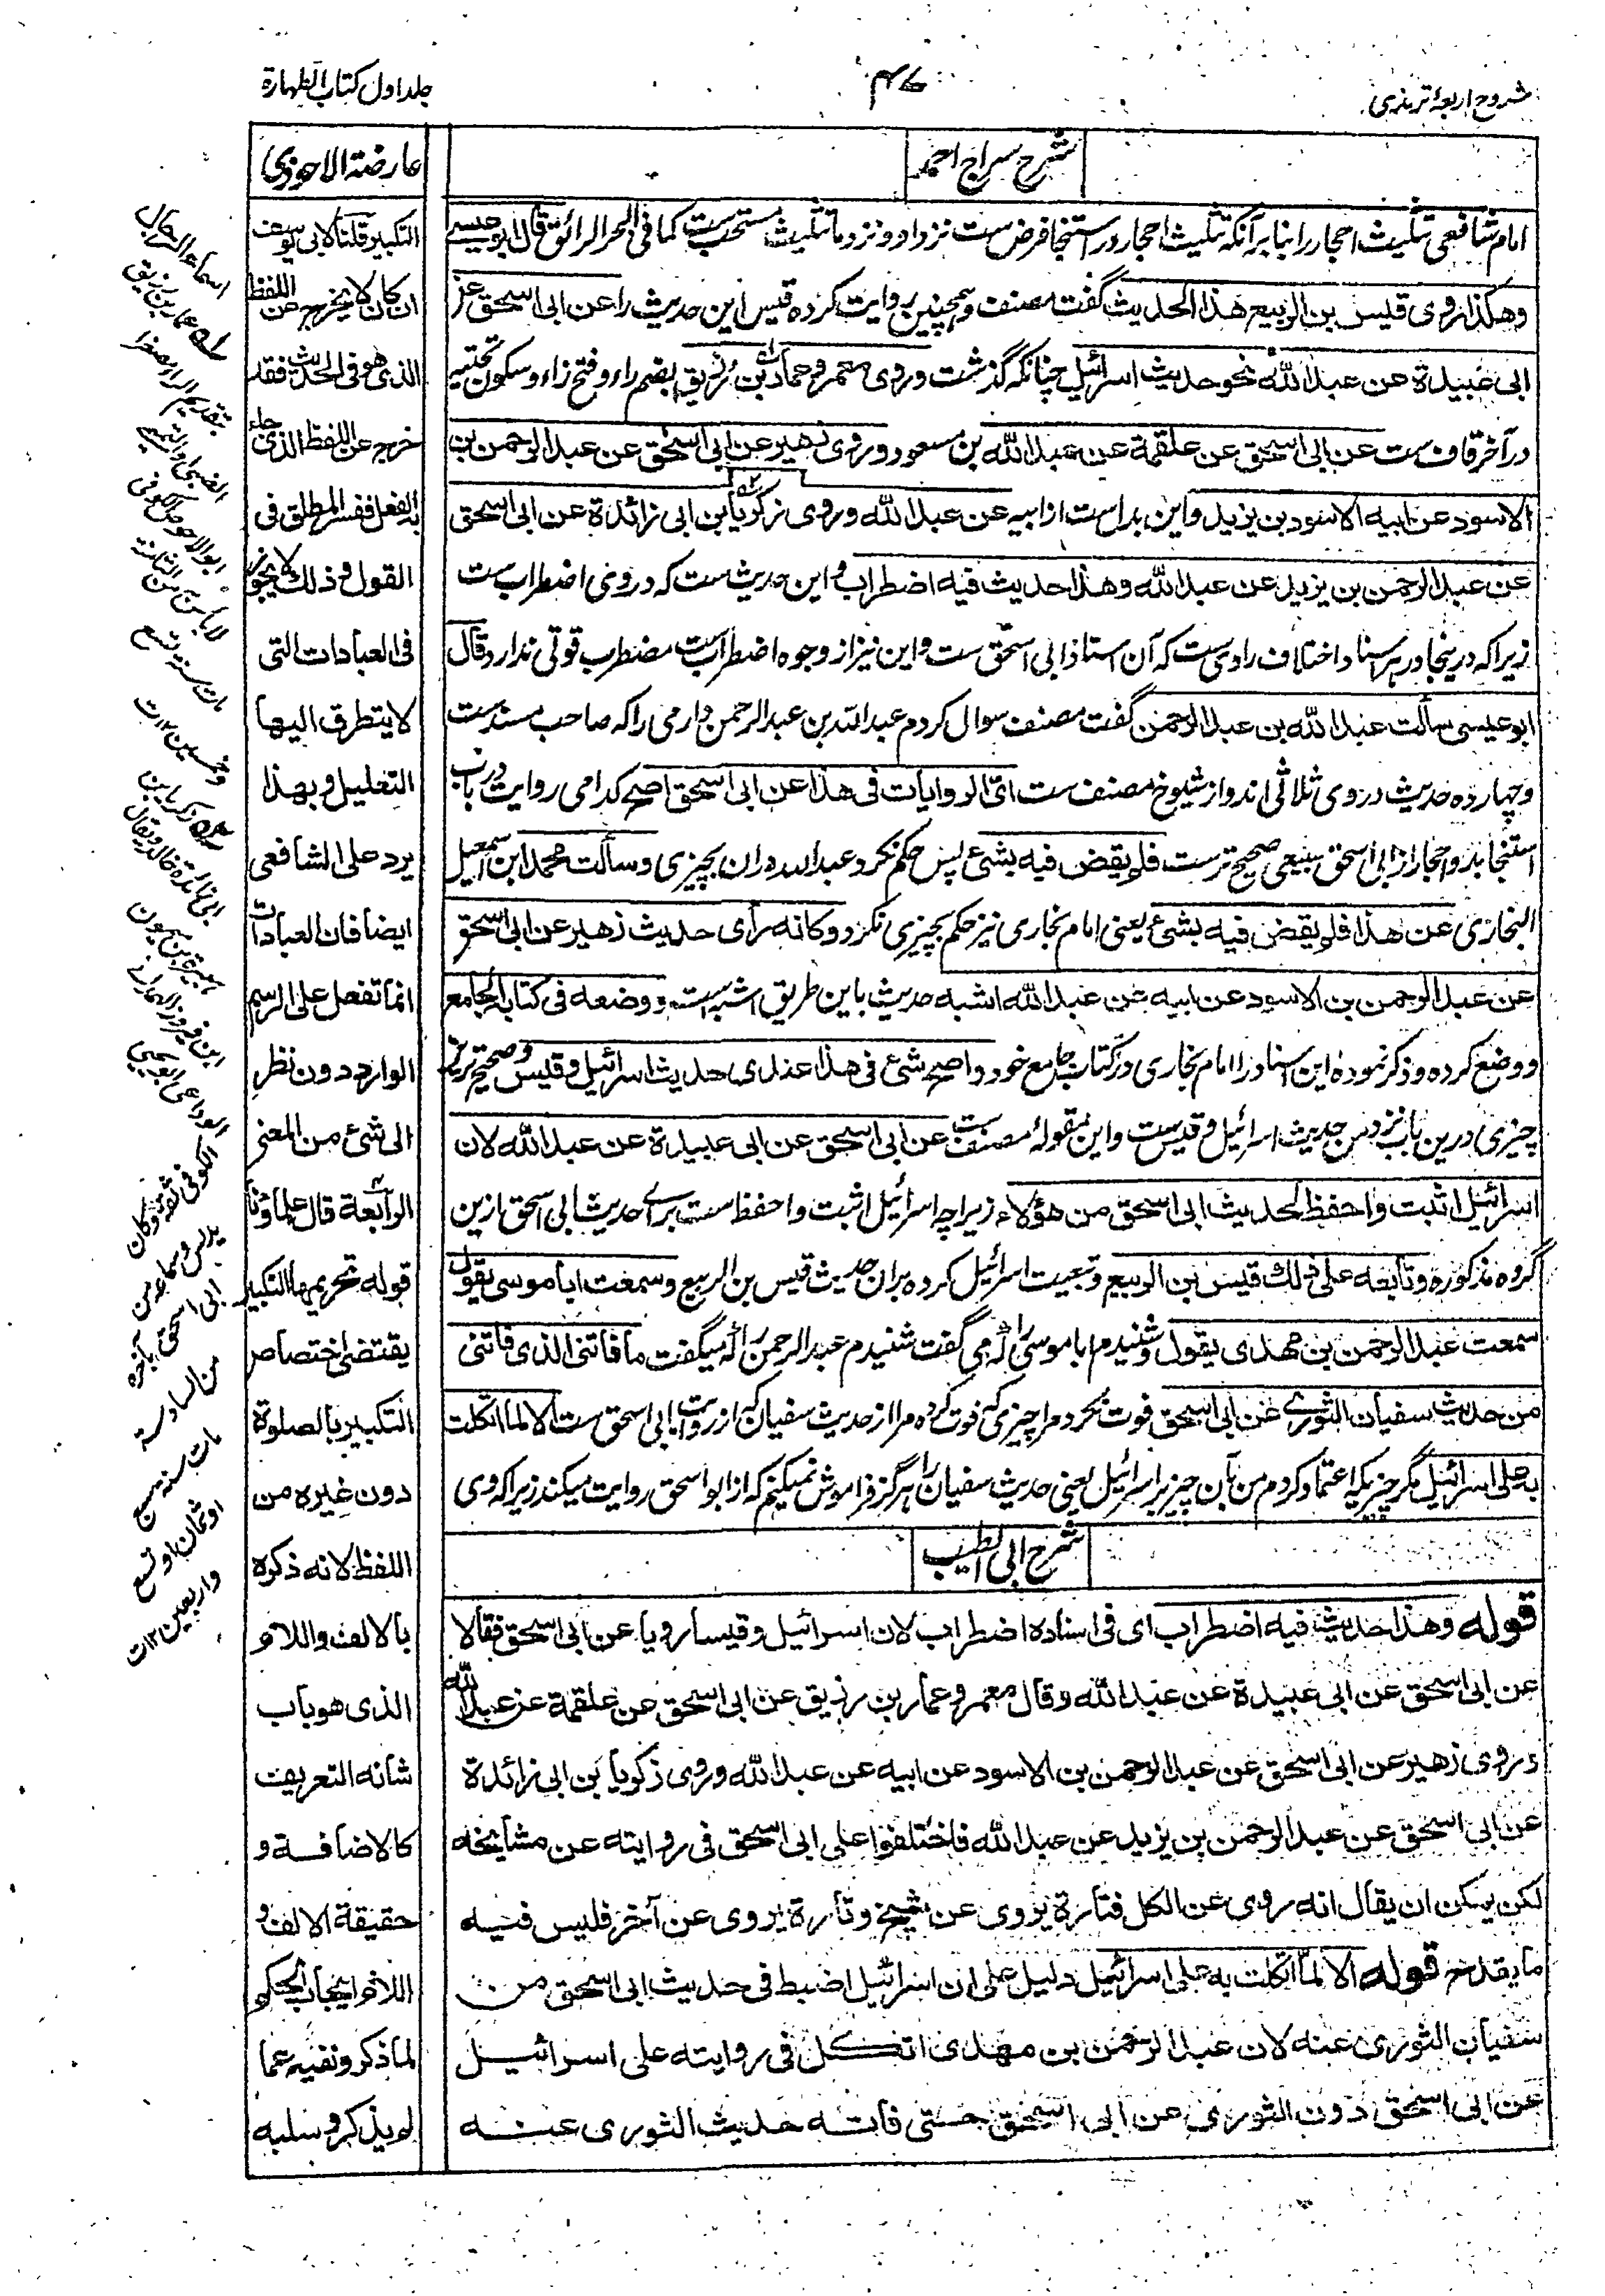 شروح اربعۂ ترمذی
۴۷
جلد اول کتاب الطهارة
شرح سراج احمد
امام شافعی تثلیث احجار را بنا بر آنکه تثلیث احجار در استنجا فرض ست نزد او و نزد ما تثلیث مستحب ست کما فی البحر الرائق قال ابو عیسے
وهكذا روی قیس بن الربیع هذا الحدیث گفت مصنف و همچنین روایت کرده قیس این حدیث را عن ابی اسحق عن
ابی عبیدة عن عبد الله نحو حدیث اسرائیل چنانکه گذشت وروی معمر و حماد بن رزیق بضم راء و فتح زاء و سکون تحتیه
در آخر قاف ست عن ابی اسحق عن علقمة عن عبد الله بن مسعود و روی زهیر عن ابی اسحق عن عبد الرحمن بن
الاسود عن ابیه الاسود بن یزید و این بدل ست از ابیه عن عبد الله وروی زکریا بن ابی زائدة عن ابی اسحق
عن عبد الرحمن بن یزید عن عبد الله وهذا حدیث فیه اضطراب و این حدیث ست که در وی اضطراب ست
زیرا که درینجا در هر اسناد اختلاف راوی ست که آن استاذ ابی اسحق ست و این نیز از وجوه اضطراب ست مضطرب قوتی ندارد قال
ابو عیسی سألت عبد الله بن عبد الرحمن گفت مصنف سوال کردم عبد الله بن عبد الرحمن دارمی را که صاحب مسند ست
و چهارده حدیث در وی ثلاثی اند و از شیوخ مصنف ست ای الروایات فی هذا عن ابی اسحق اصح کدامی روایت درباب
استنجا بدو احجار از ابی اسحق سبیعی صحیح تر ست فلم یقض فیه بشئ پس حکم نکرد عبد الله دران بچیزی وسألت محمد ابن اسمعیل
البخاری عن هذا فلم یقض فیه بشئ یعنی امام بخاری نیز حکم بچیزی نکرد و کانه رأی حدیث زهیر عن ابی اسحق
عن عبد الرحمن بن الاسود عن ابیه عن عبد الله اشبه حدیث باین طریق اشبه است ووضعه فی کتابه الجامع
و وضع کرده و ذکر نموده این اسناد را امام بخاری در کتاب جامع خود واصح شئ فی هذا عندی حدیث اسرائیل وقیس و صحیح ترین
چیزی درین باب نزد من حدیث اسرائیل و قیس ست و این مقولۂ مصنف ست عن ابی اسحق عن ابی عبیدة عن عبد الله لان
اسرائیل اثبت واحفظ لحدیث ابی اسحق من هؤلاء زیرا چه اسرائیل اثبت و احفظ ست برائے حدیث ابی اسحق ازین
گروه مذکوره وتابعه علی ذلك قیس بن الربیع و تبعیت اسرائیل کرده بران حدیث قیس بن الربیع وسمعت ابا موسی یقول
سمعت عبد الرحمن بن مهدی یقول و شنیدم ابا موسی را که می گفت شنیدم عبد الرحمن را که میگفت ما فاتنی الذی فاتنی
من حدیث سفیان الثوری عن ابی اسحق فوت نکرد مرا چیزی که فوت کرده مرا از حدیث سفیان که از روایت ابی اسحق ست الا لما اتکلت
به علی اسرائیل مگر چیزیکه اعتماد کردم من بآن چیز بر اسرائیل یعنی حدیث سفیان را هرگز فراموش نمیکنم که از ابو اسحق روایت میکند زیرا که وی
شرح ابی الطیب
قوله وهذا حدیث فیه اضطراب ای فی اسناده اضطراب لان اسرائیل وقیسا رویا عن ابی اسحق فقالا
عن ابی اسحق عن ابی عبیدة عن عبد الله وقال معمر وعمار بن رزیق عن ابی اسحق عن علقمة عن عبد الله
وروی زهیر عن ابی اسحق عن عبد الرحمن بن الاسود عن ابیه عن عبد الله وروی زکریا بن ابی زائدة
عن ابی اسحق عن عبد الرحمن بن یزید عن عبد الله فاختلفوا علی ابی اسحق فی روایته عن مشایخه
لکن یمکن ان یقال انه روی عن الکل فتارة یروی عن شیخ وتارة یروی عن آخر فلیس فیه
ما یقدح قوله الا لما اتکلت به علی اسرائیل دلیل علی ان اسرائیل اضبط فی حدیث ابی اسحق من
سفیان الثوری عنه لان عبد الرحمن بن مهدی اتکل فی روایته علی اسرائیل
عن ابی اسحق دون الثوری عن ابی اسحق حتی فاته حدیث الثوری عنه
عارضة الاحوذی
التکبیر قلنا لابی یوسف
ان کان لا یخرج من اللفظ
الذی هو فی الحدیث فقد
خرج عن اللفظ الذی جاء
بالفعل ففسر المطلق فی
القول وذلك لا یجوز
فی العبادات التی
لا یتطرق الیها
التعلیل وبهذا
یرد علی الشافعی
ایضا فان العبادات
انما تفعل علی الرسم
الوارد دون نظر
الی شئ من المعنی
الرابعة قال علماؤنا
قوله تحریمها التکبیر
یقتضی اختصاص
التکبیر بالصلوة
دون غیره من
اللفظ لانه ذکره
بالالف واللام
الذی هو باب
شانه التعریف
کالاضافة و
حقیقة الالف و
اللام ایجاب الحکم
لما ذکر ونفیه عما
لم یذکر وسلبه
اسماء الرجال
له عمار بن رزیق
بتقدیم الراء مصغرا
الضبی او التمیمی
ابو الاحوص الکوفی
لا باس به من الثامنة
مات سنة تسع
وخمسین ۱۲ ت
زکریا بن
ابی زائدة خالد ویقال
هبیرة بن میمون
ابن فیروز الهمدانی
الوداعی ابو یحیی
الکوفی ثقة وکان
یدلس وسماعه من
ابی اسحق بآخره
من السادسة
مات سنة سبع
او ثمان او تسع
واربعین ۱۲ ت